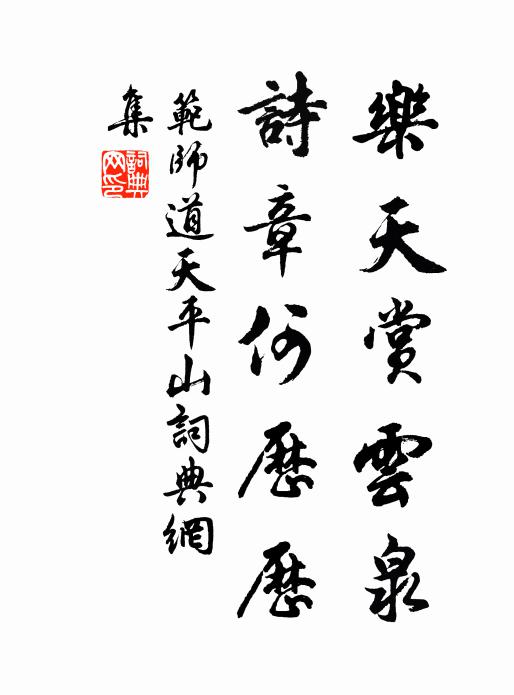 樂天賞雲泉
詩章何歷歷
範師道天平山詞典網
集
詞典
网印